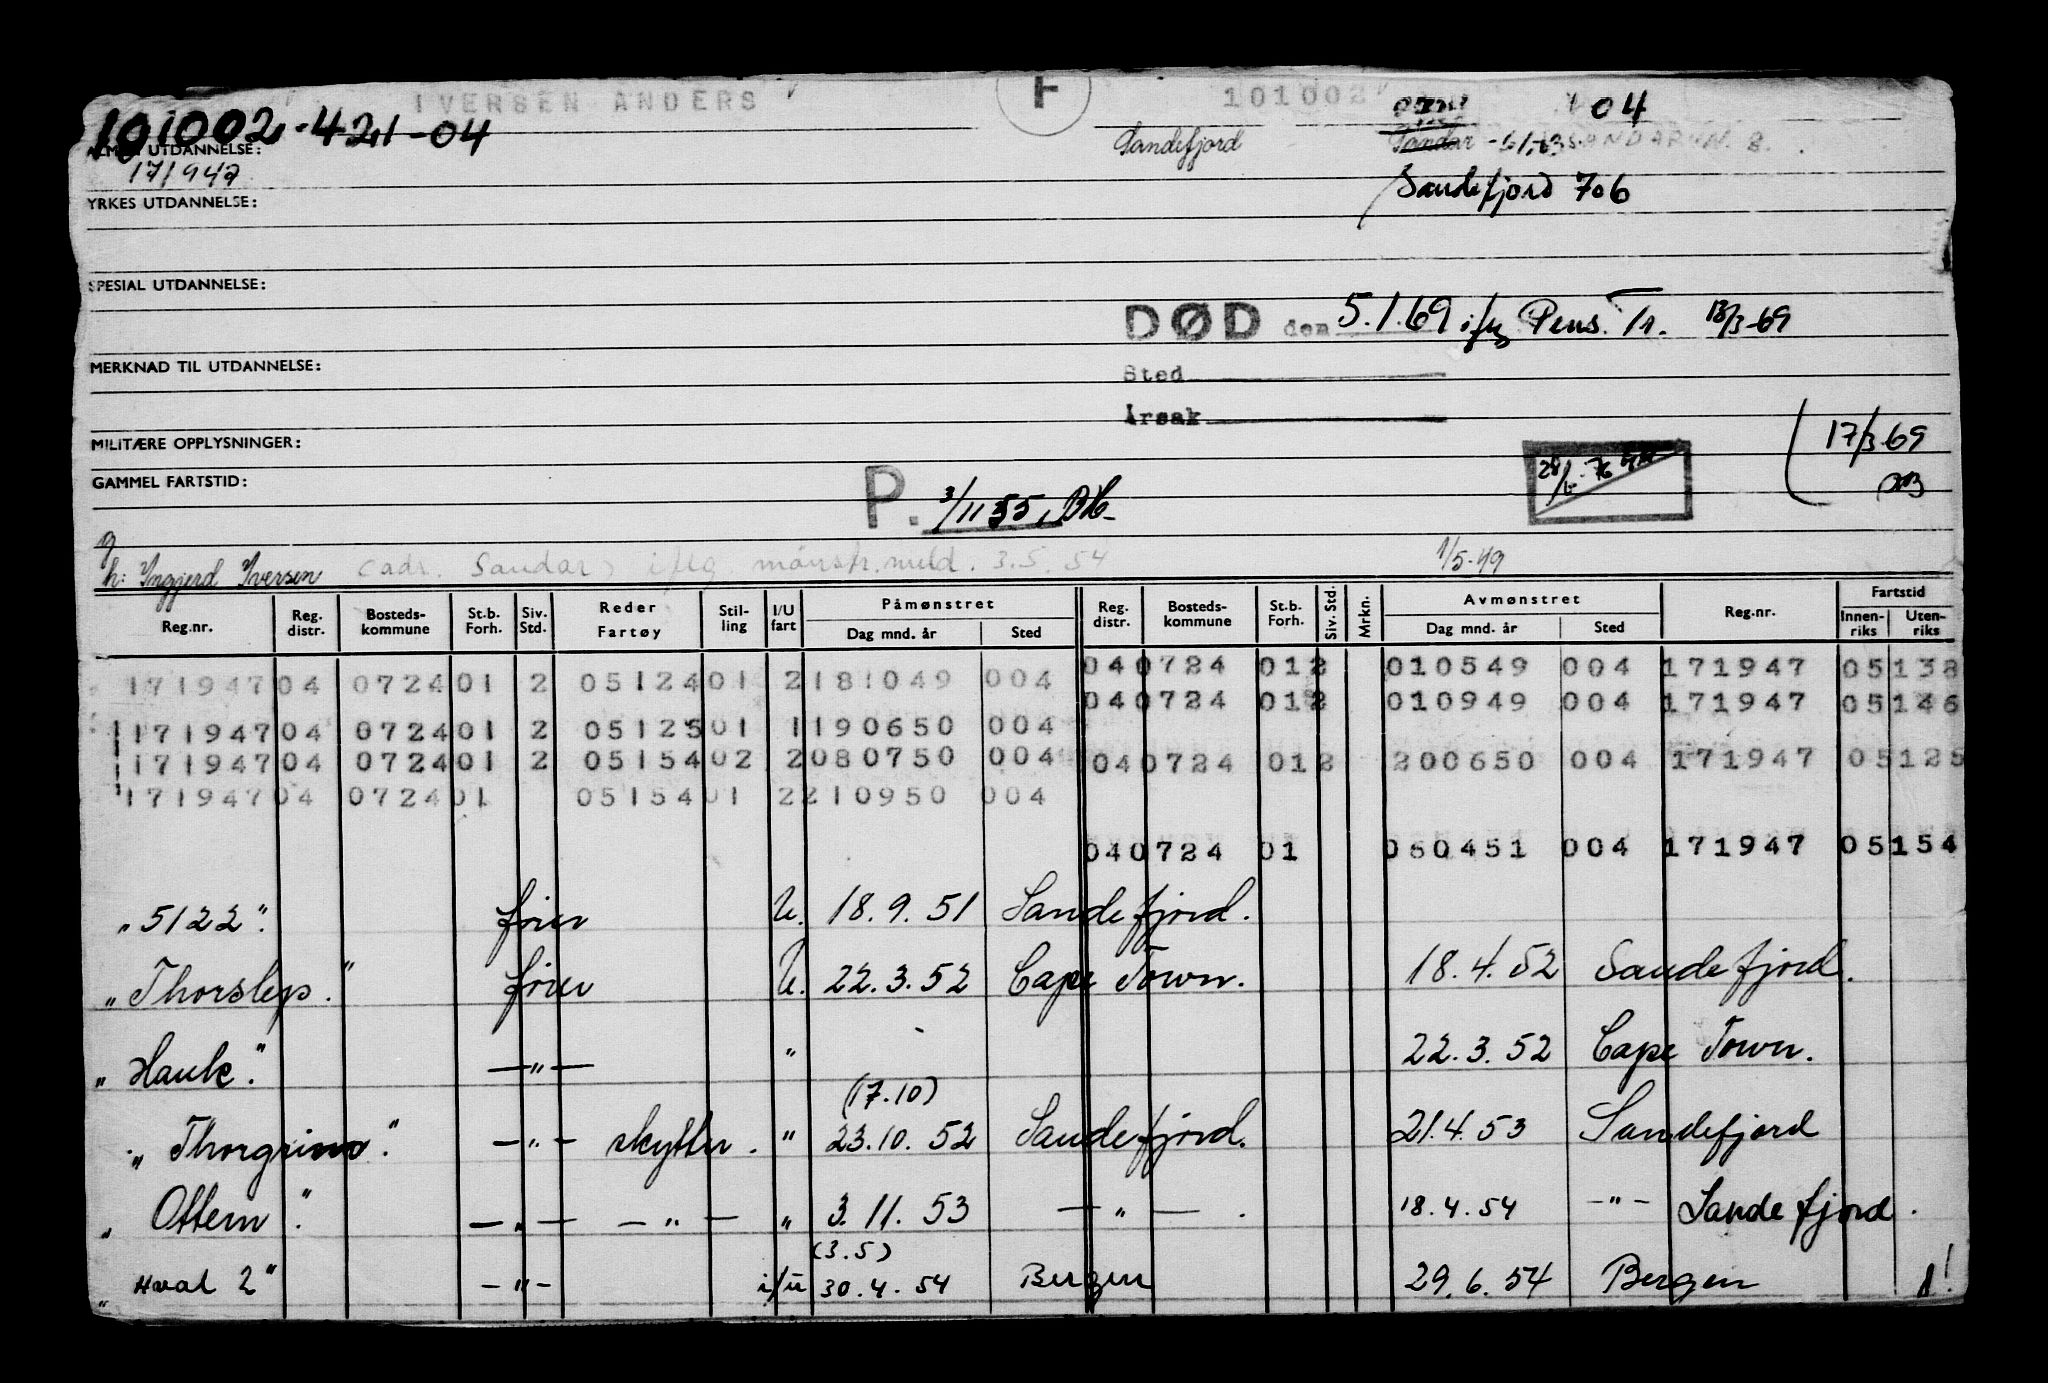 IVERSEN ANDERS F 101002 04
101002-421-04 Sandefjord Sandar - 6/ SANDAR
ALM. UTDANNELSE:
171947 Sandefjord 706
YRKES UTDANNELSE:
SPESIAL UTDANNELSE:
DØD den 5.1.69 ifg Pens. Tr. 18/3-69
MERKNAD TIL UTDANNELSE:
Sted
Årsak
MILITÆRE OPPLYSNINGER: 17/3-69
GAMMEL FARTSTID:
P. 3/11 55, BH-
g
h: Yngjerd Iversen (adr. Sandar) iflg. mønstr.meld. 3.5.54 1/5-49
Reg.nr. Reg. distr. Bosteds-kommune St.b. Forh. Siv. Std. Reder Fartøy Stil-ling I/U fart Påmønstret Dag mnd. år Sted Reg. distr. Bosteds-kommune St.b. Forh. Siv. Std. Mrkn. Avmønstret Dag mnd. år Sted Reg.nr. Fartstid Innen-riks Uten-riks
04 0724 01 2 010549 004 171947 05138
171947 04 0724 01 2 05124 01 2 181049 004
04 0724 01 2 010949 004 171947 05146
171947 04 0724 01 2 05125 01 1 190650 004
171947 04 0724 01 2 05154 02 2 080750 004 04 0724 01 2 200650 004 171947 05125
171947 04 0724 01 05154 01 2 210950 004
04 0724 01 060451 004 171947 05154
"5122". fører U. 18.9.51 Sandefjord.
"Thorslep." fører U. 22.3.52 Cape Town. 18.4.52 Sandefjord.
"Hauk". —"— " 22.3.52 Cape Town.
(17.10)
"Thorgrim". —"— skytter. " 23.10.52 Sandefjord. 21.4.53 Sandefjord
"Ottern". —"— —"— " 3.11.53 —"—. 18.4.54 —"— Sandefjord.
(3.5)
"Hval 2" —"— i/u 30.4.54 Bergen 29.6.54 Bergen